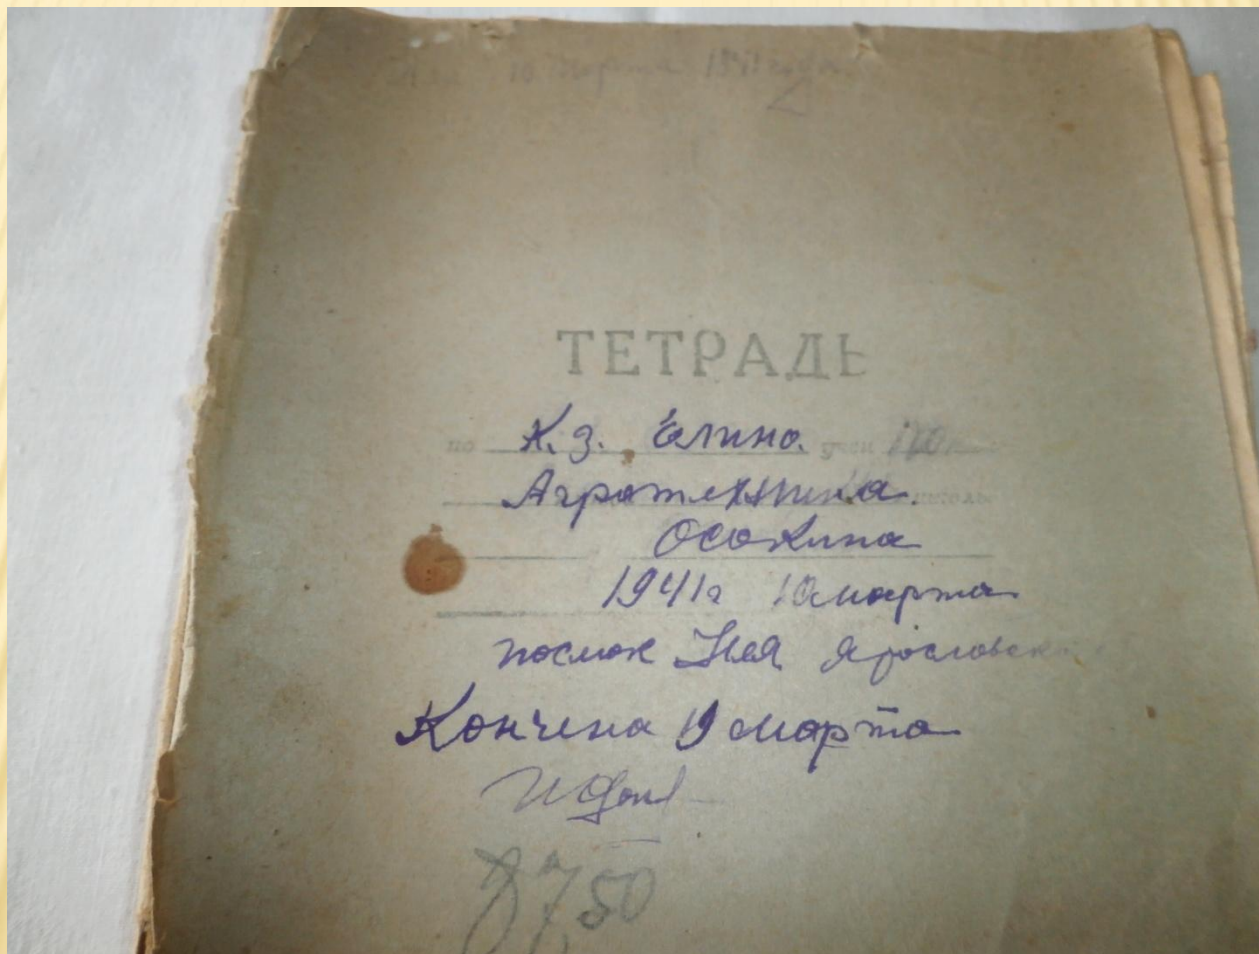 10 марта 1941 года
ТЕТРАДЬ
по К.З. Елино. учен
Агротехника.
Осокина
1941г 10 марта
поселок Нея Ярославск
Кончена 19 марта
7,50